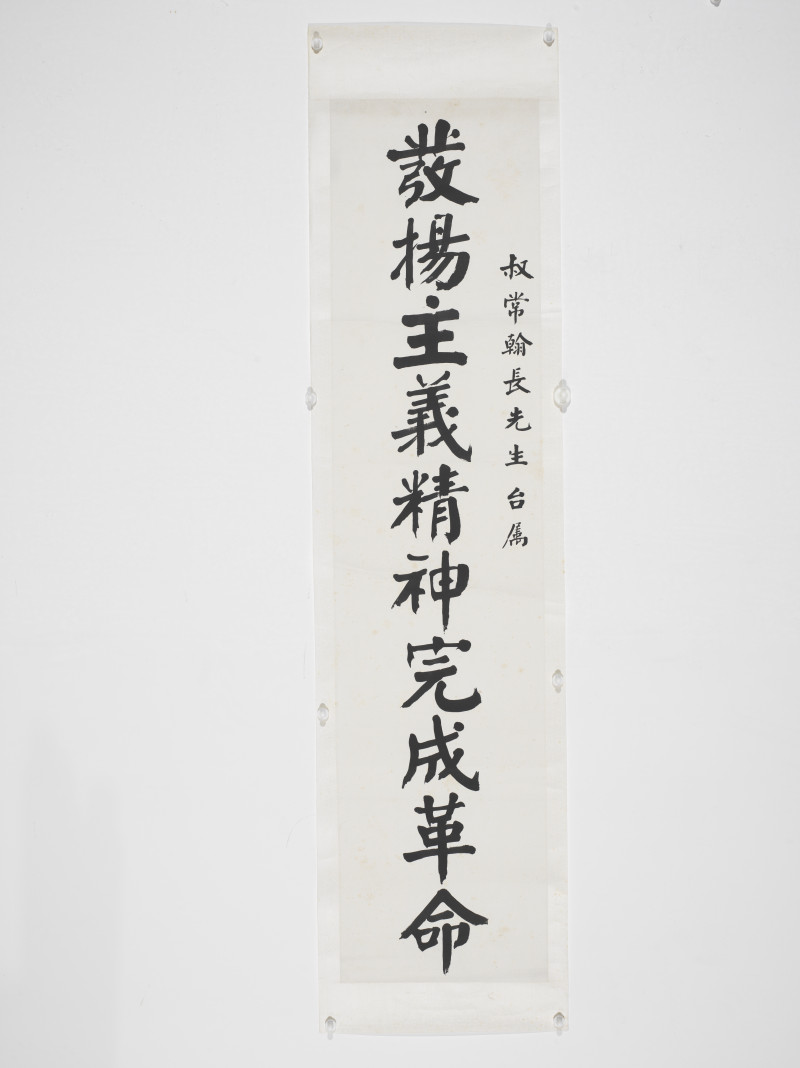 叔常翰長先生台属
發揚主義精神完成革命